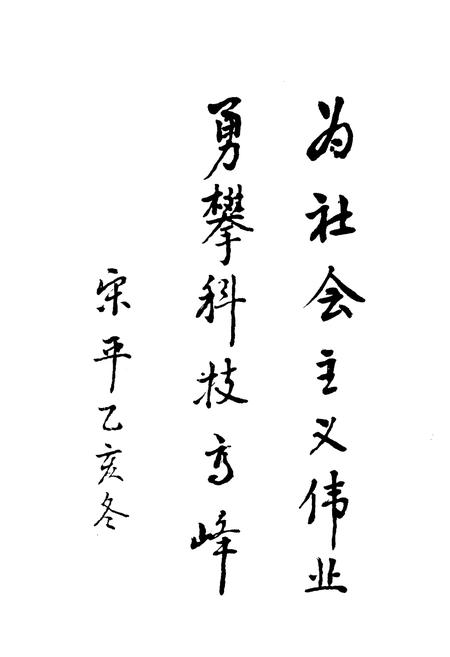 为社会主义伟业
勇攀科技高峰
宋平乙亥冬